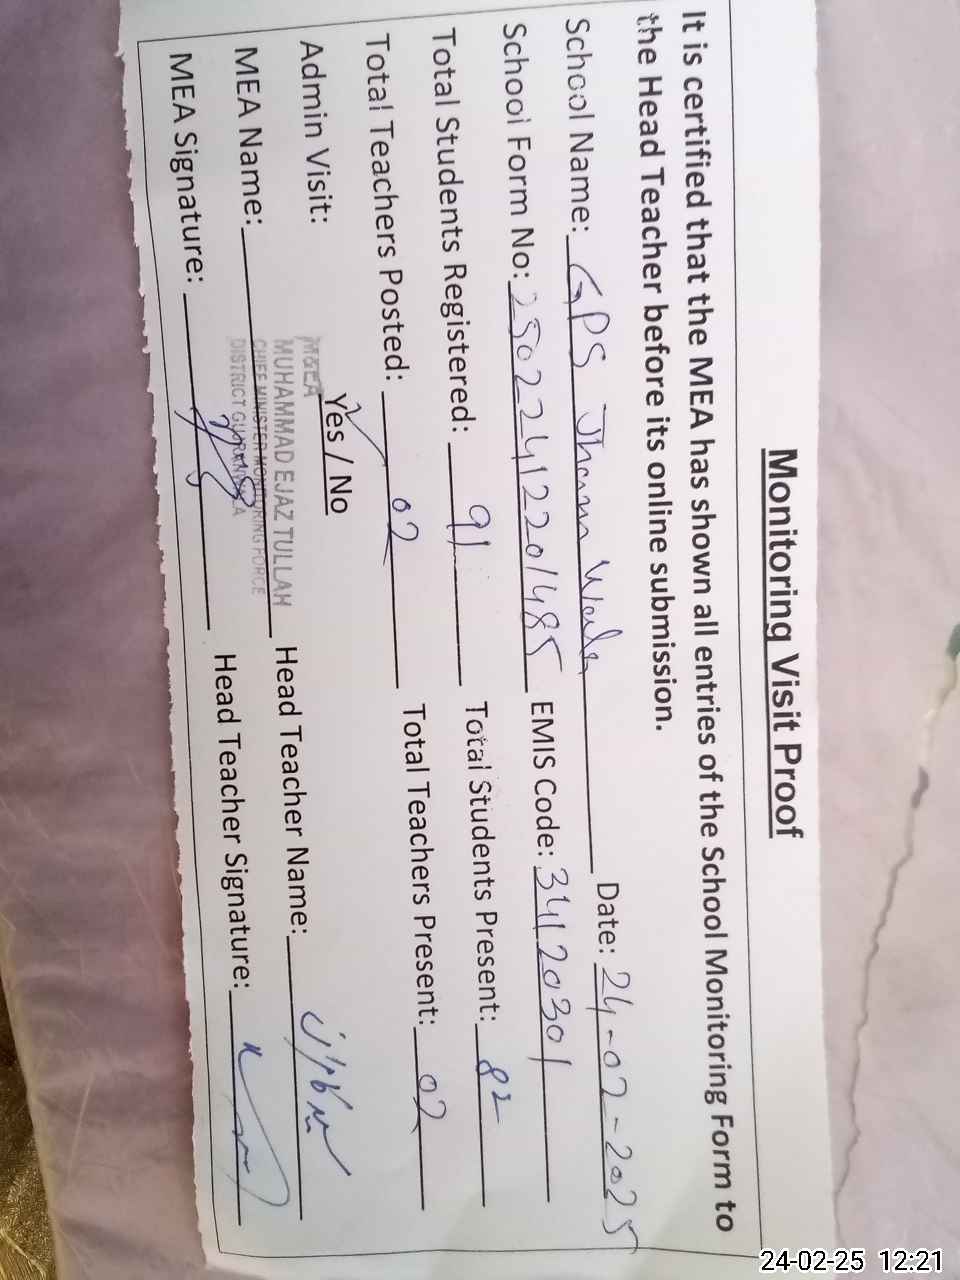 Monitoring Visit Proof
It is certified that the MEA has shown all entries of the School Monitoring Form to
the Head Teacher before its online submission.
School Name: GPS Jhamn Wala Date: 24-02-2025
School Form No: 250222412201485 EMIS Code: 34120301
Total Students Registered: 91 Total Students Present: 82
Total Teachers Posted: 02 Total Teachers Present: 02
Admin Visit: Yes / No
MEA Name: Head Teacher Name:
M&EA
MUHAMMAD EJAZ TULLAH
CHIEF MINISTER MONITORING FORCE
DISTRICT GUJRANWALA
MEA Signature: Head Teacher Signature:
24-02-25 12:21